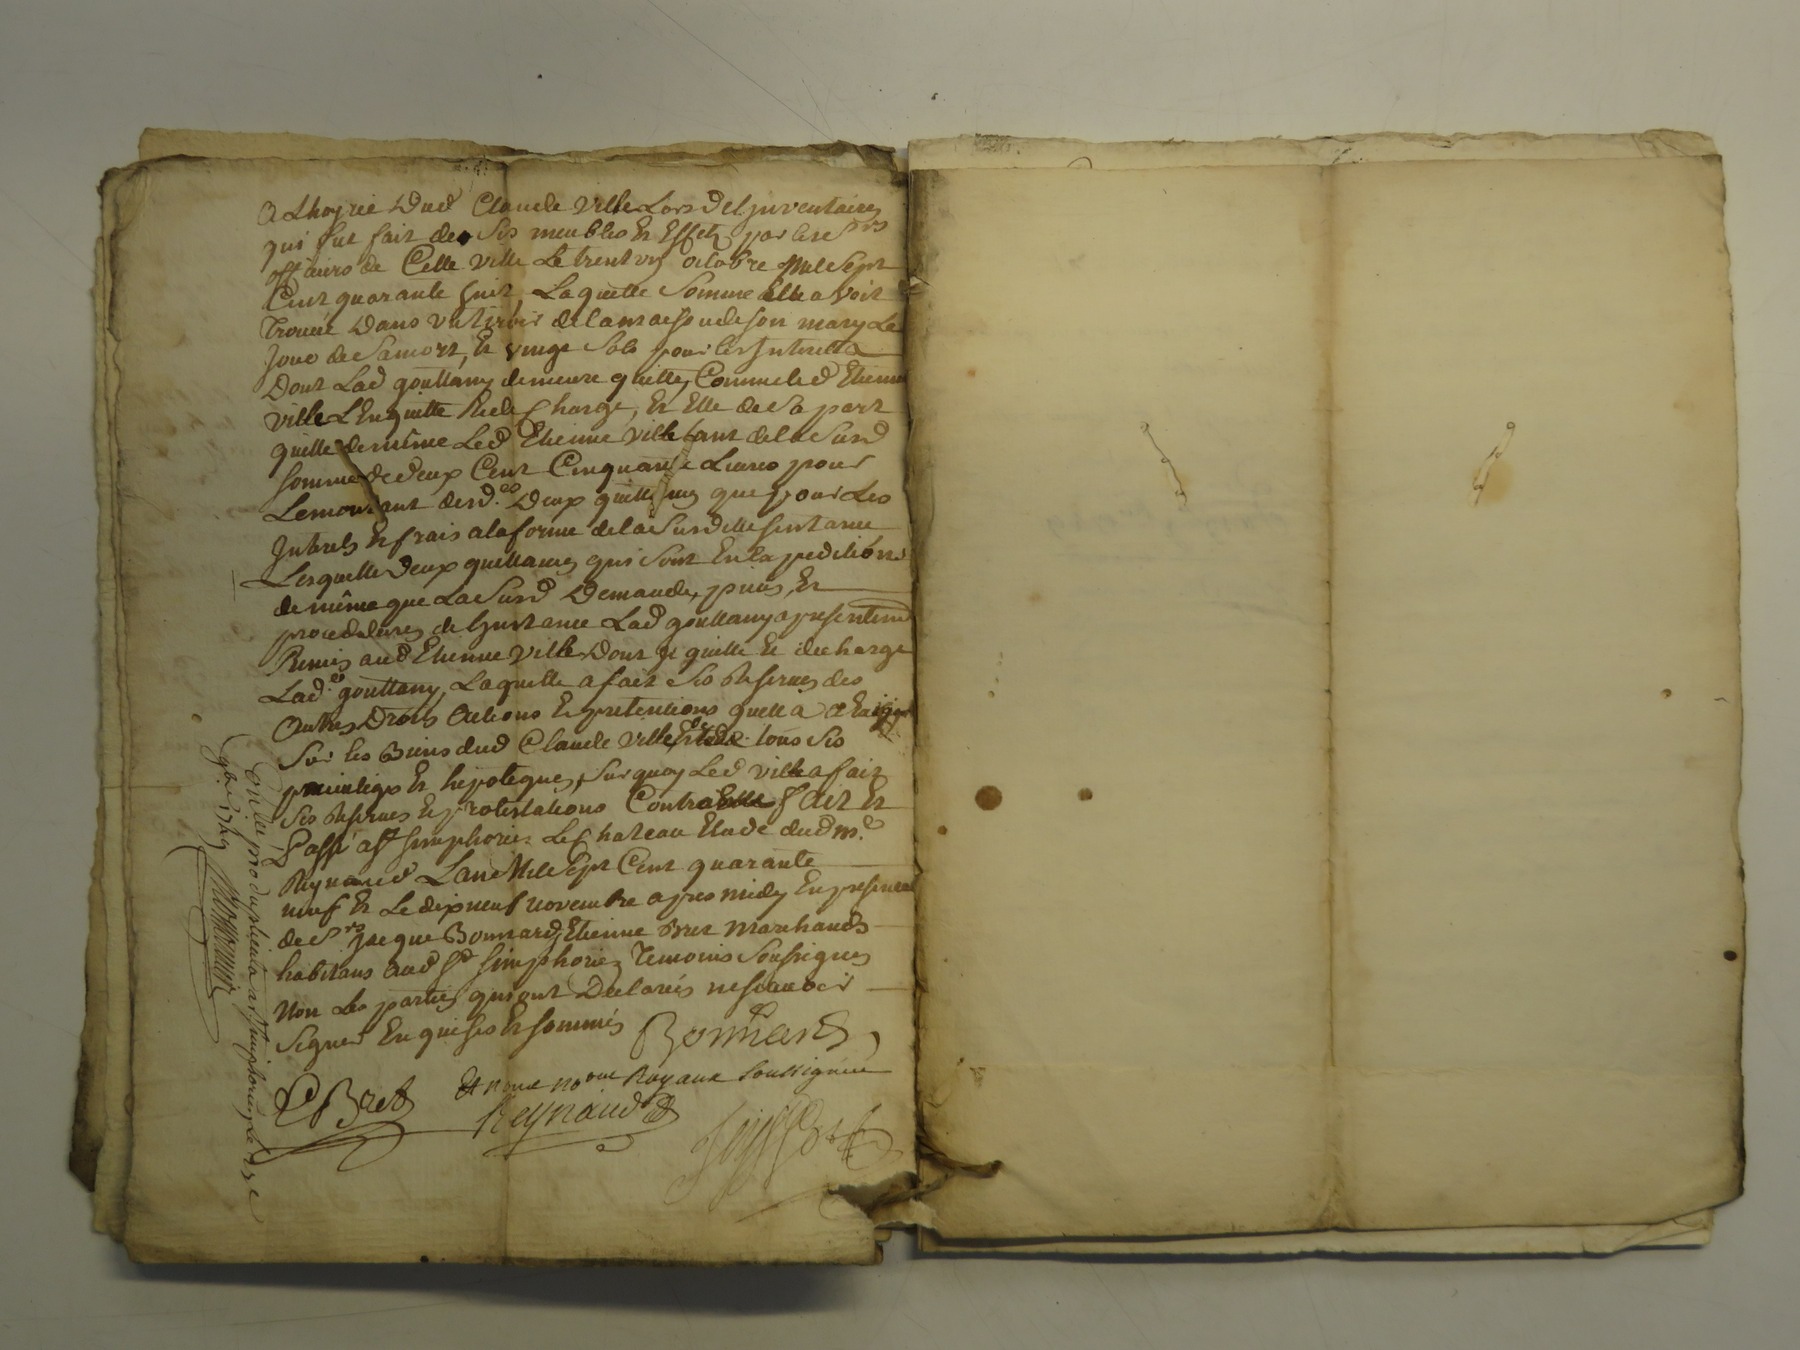 a Lhoyrie Dud Claude Ville Lors de Linventaire
qui fut fait de ses meubles Et Effets par les Srs
officiers de Cette Ville Le trent un octobre Mil Sept
Cent quarante huit, Laquelle Somme Elle avoit
Trouvé Dans un tiroir de la maison de son mary Le
Jour de Sa mort, Et vingt Sols pour les Interetts
Dont Lad gouttany demeure quitte, Comme led Etienne
Ville L'En quitte Et decharge, Et Elle de Sa part
quitte de même Led Etienne Ville tant de la Surd
Somme de deux Cent Cinquante Livres pour
Le montant desd. Deux quittances que pour Les
Interets Et frais a la forme de la Surditte Sentance
Lesquelle Deux quittances qui Sont En Expeditions
de même que La Surd Demande, pieces, Et
procedures de Linstance Lad gouttany a presentement
Remis aud Etienne Ville Dont il quitte Et decharge
Lad. gouttany, Laquelle a fait Ses Reserves des
Autres Droits Actions Et pretentions quelle a a Exiger
Sur les Biens dud Claude Ville Et de tous Ses
privileges Et hipoteques, Sur quoy Led Ville a fait
Ses Reserves Et protestations Contraires fait Et
Passé a St Simphorien Le Chateau Etude dud Me
Reynaud L'an Mil Sept Cent quarante
neuf Et Le dix neuf novembre apres midy En presence
de Srs Jacque Bonnard, Etienne Bret Marchands
habitans aud St Simphorien Temoins Soussignes
Non Les parties qui ont Declarés ne Scavoir
Signer Enquises Et Sommés Bonnard
C Bret Et nous nores Royaux Soussignés
Reynaud